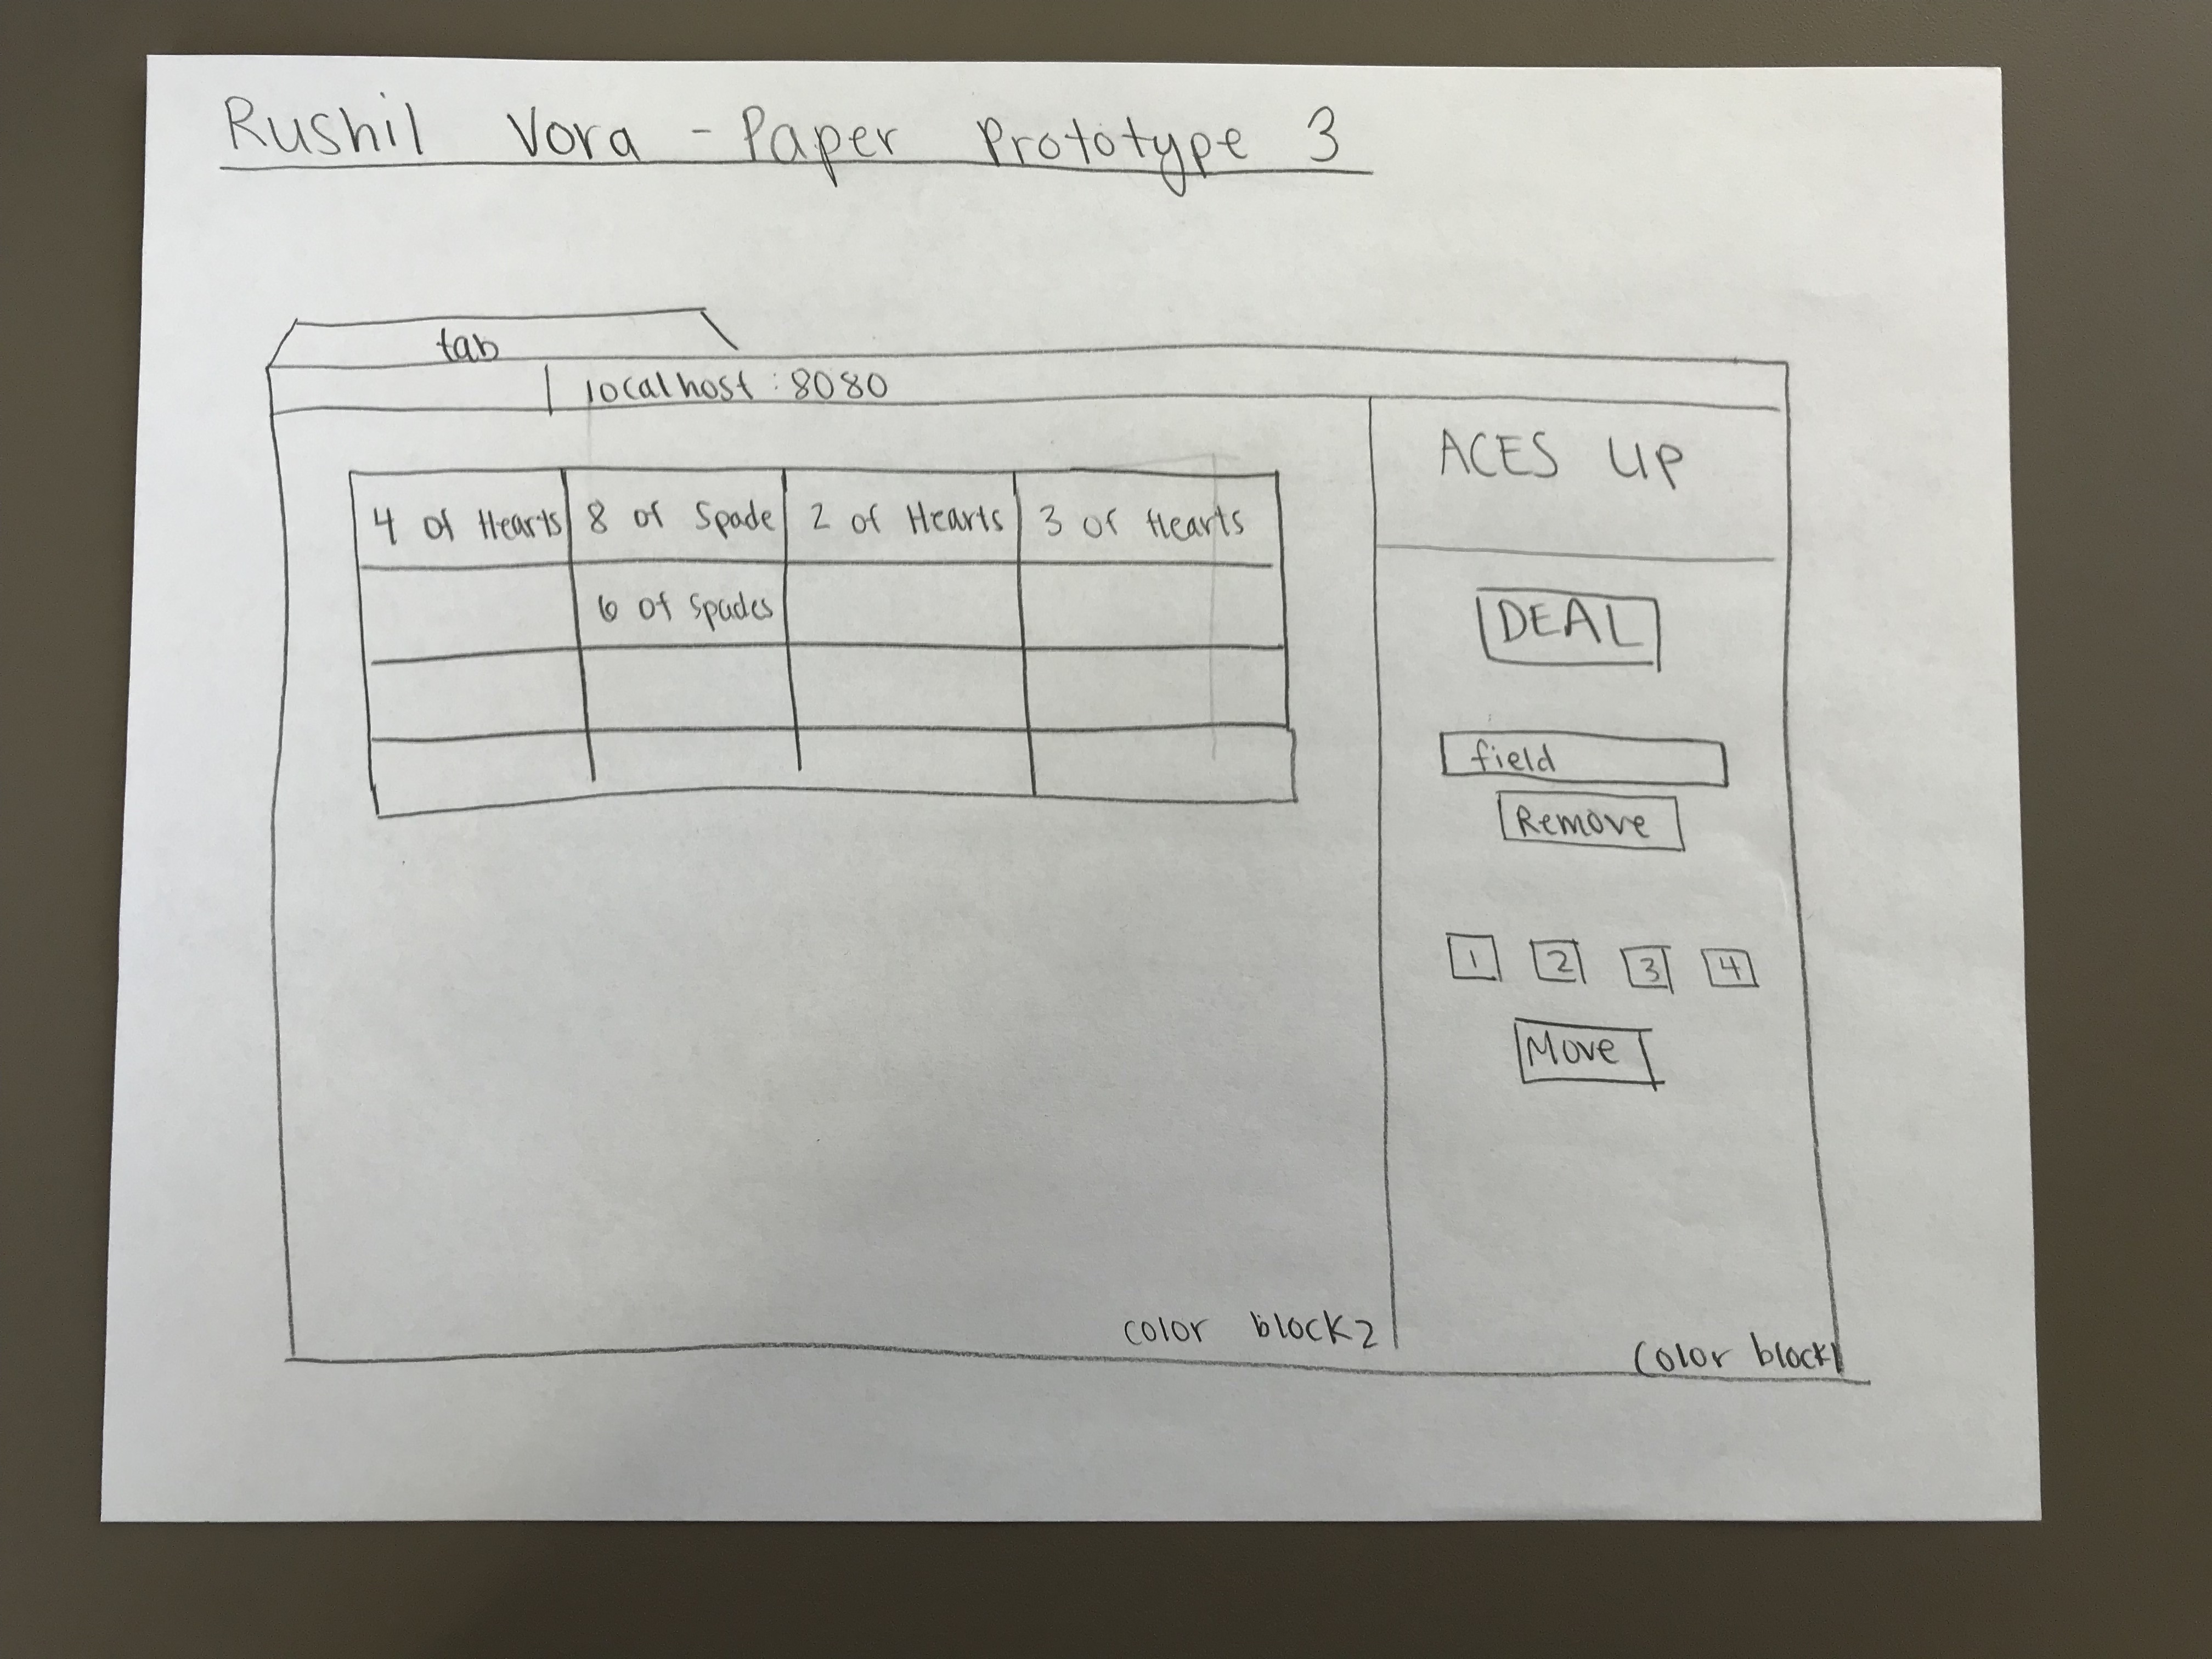 Rushil Vora - Paper Prototype 3
tab
localhost:8080
4 of Hearts 8 of Spade 2 of Hearts 3 of Hearts
6 of Spades
ACES UP
DEAL
field
Remove
1 2 3 4
Move
color block2
color block1